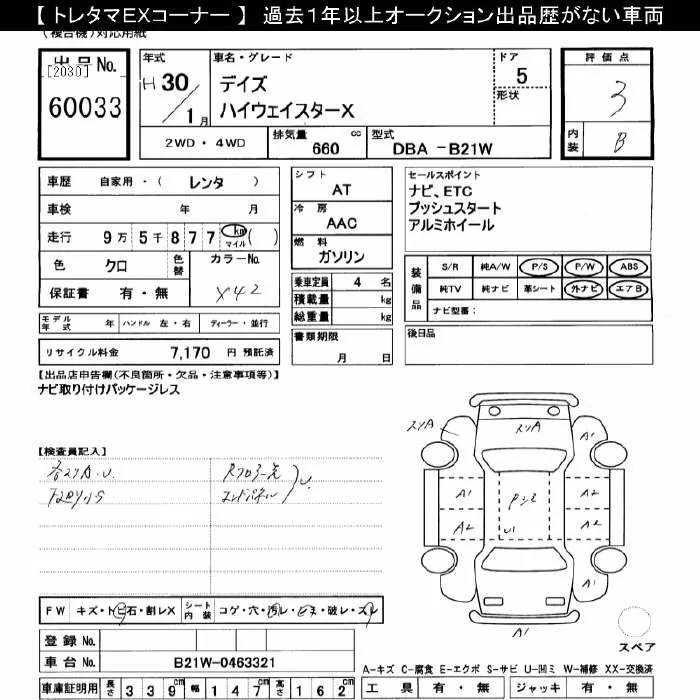 【トレタマEXコーナー】 過去1年以上オークション出品歴がない車両
(複合機)対応用紙
出品No.
[2030]
60033
年式 H 30 / 1 月
車名・グレード
デイズ
ハイウェイスターX
ドア 5
形状
評価点 3
内装 B
2WD・4WD
排気量 660 cc
型式 DBA -B21W
車歴 自家用・( レンタ )
車検 年 月
走行 9万 5千 8 7 7 km マイル ( )
色 クロ 色替 カラーNo.
保証書 有・無 X42
モデル年式 年 ハンドル 左・右 ディーラー・並行
リサイクル料金 7,170 円 預託済
シフト AT
冷房 AAC
燃料 ガソリン
乗車定員 4 名
積載量 kg
総重量 kg
書類期限
月 日
セールスポイント
ナビ、ETC
プッシュスタート
アルミホイール
装備品
S/R 純A/W P/S P/W ABS
純TV 純ナビ 革シート 外ナビ エアB
ナビ型番:
後日品
【出品店申告欄(不良箇所・欠品・注意事項等)】
ナビ取り付けパッケージレス
【検査員記入】
各スリA.U.
スリA
A1
A1
A2
A2
A2
U1
A1
A1
FW キズ・トビ石・割レX シート内装 コゲ・穴・汚レ・ヒビ・破レ・スレ
登録No.
車台No. B21W-0463321
車庫証明用 長さ 339cm 幅 147cm 高さ 162cm
スペア
A-キズ C-腐食 E-エクボ S-サビ U-凹ミ W-補修 XX-交換済
工具 有・無 ジャッキ 有・無